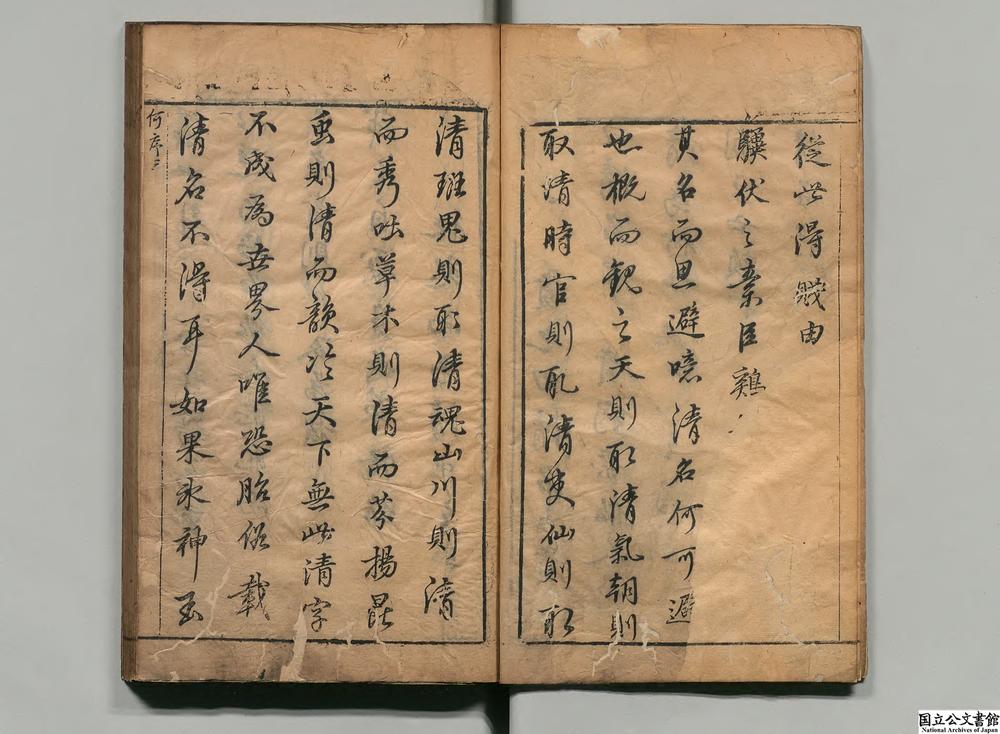 從此得賤由
驥伏之素臣鷄
其名而思避噫清名何可避
也概而觀之天則取清氣朝則
取清時官則取清吏仙則取
清班鬼則取清魂山川則清
而秀吐草木則清而芬揚昆
虫則清而韻冷天下無此清字
不成爲世界人唯恐胎俗載
清名不得耳如果氷神玉
何序三
国立公文書館
National Archives of Japan